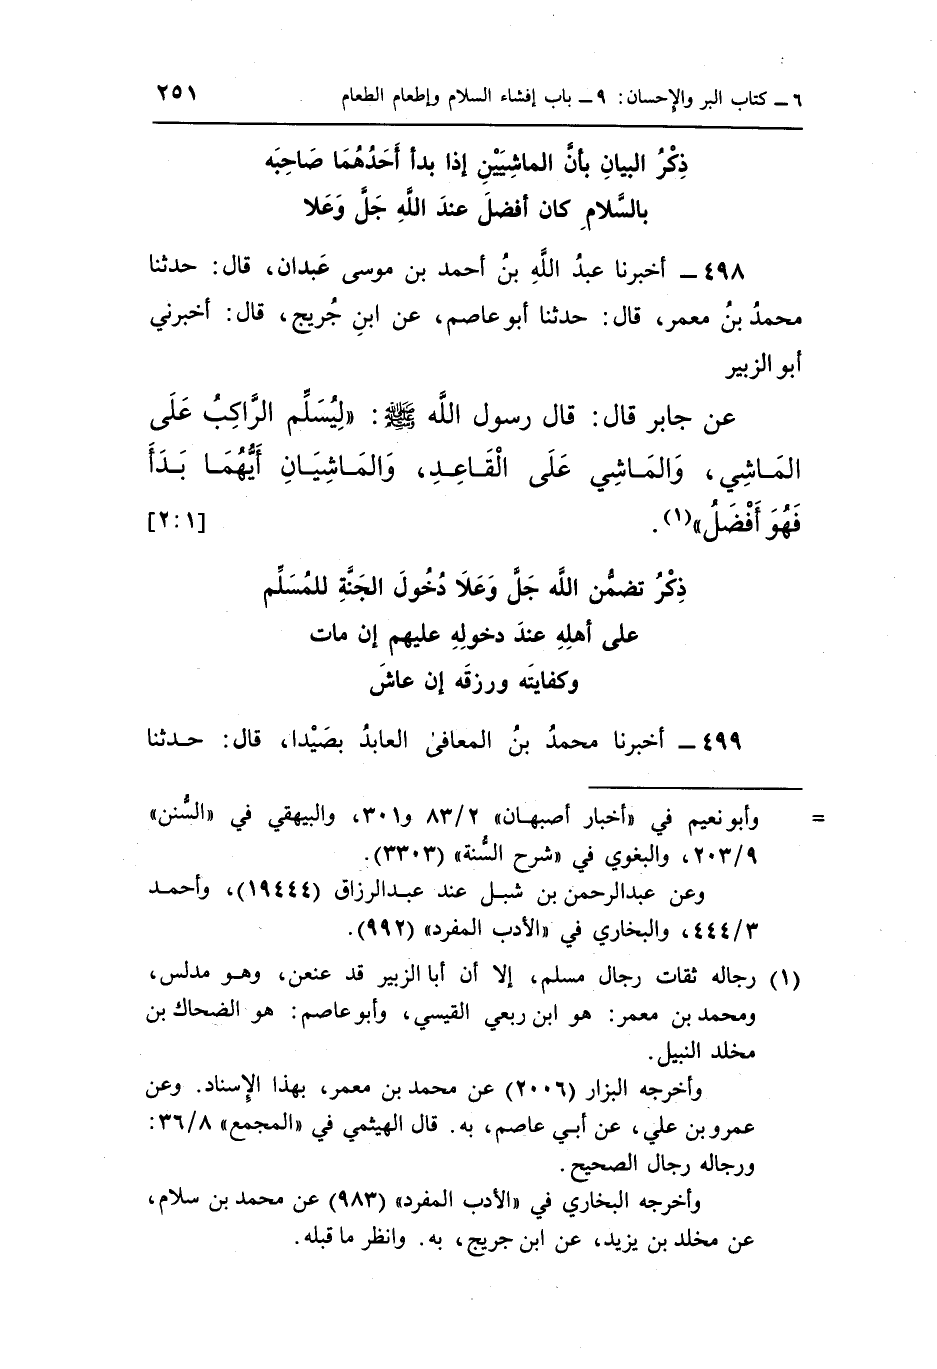 ٦ ــ كتاب البر والإحسان: ٩ ــ باب إفشاء السلام وإطعام الطعام ٢٥١
ذِكْرُ البيانِ بأنَّ الماشِيَيْنِ إذا بدأ أَحَدُهُمَا صَاحِبَه
بالسَّلامِ كان أفضلَ عندَ اللَّهِ جَلَّ وَعَلا
٤٩٨ ــ أخبرنا عبدُ اللَّهِ بنُ أحمد بن موسى عَبدان، قال: حدثنا
محمدُ بنُ معمر، قال: حدثنا أبو عاصم، عن ابنِ جُريج، قال: أخبرني
أبو الزبير
عن جابر قال: قال رسول اللَّه ﷺ: «لِيُسَلِّم الرَّاكِبُ عَلَى
المَاشِي، وَالمَاشِي عَلَى الْقَاعِدِ، وَالمَاشِيَانِ أَيُّهُمَا بَدَأَ
فَهُوَ أَفْضَلُ»(١). [٢:١]
ذِكْرُ تضمُّن اللَّه جَلَّ وَعَلَا دُخُولَ الجَنَّةِ للمُسَلِّم
على أهلِهِ عندَ دخولِهِ عليهم إن مات
وكفايتَه ورزقَه إن عاشَ
٤٩٩ ــ أخبرنا محمدُ بنُ المعافىٰ العابدُ بصَيْدا، قال: حدثنا
= وأبو نعيم في «أخبار أصبهان» ٨٣/٢ و٣٠١، والبيهقي في «السُّنن»
٢٠٣/٩، والبغوي في «شرح السُّنة» (٣٣٠٣).
وعن عبدالرحمن بن شبل عند عبدالرزاق (١٩٤٤٤)، وأحمد
٤٤٤/٣، والبخاري في «الأدب المفرد» (٩٩٢).
(١) رجاله ثقات رجال مسلم، إلا أن أبا الزبير قد عنعن، وهو مدلس،
ومحمد بن معمر: هو ابن ربعي القيسي، وأبو عاصم: هو الضحاك بن
مخلد النبيل.
وأخرجه البزار (٢٠٠٦) عن محمد بن معمر، بهذا الإسناد. وعن
عمرو بن علي، عن أبي عاصم، به. قال الهيثمي في «المجمع» ٣٦/٨:
ورجاله رجال الصحيح.
وأخرجه البخاري في «الأدب المفرد» (٩٨٣) عن محمد بن سلام،
عن مخلد بن يزيد، عن ابن جريج، به. وانظر ما قبله.